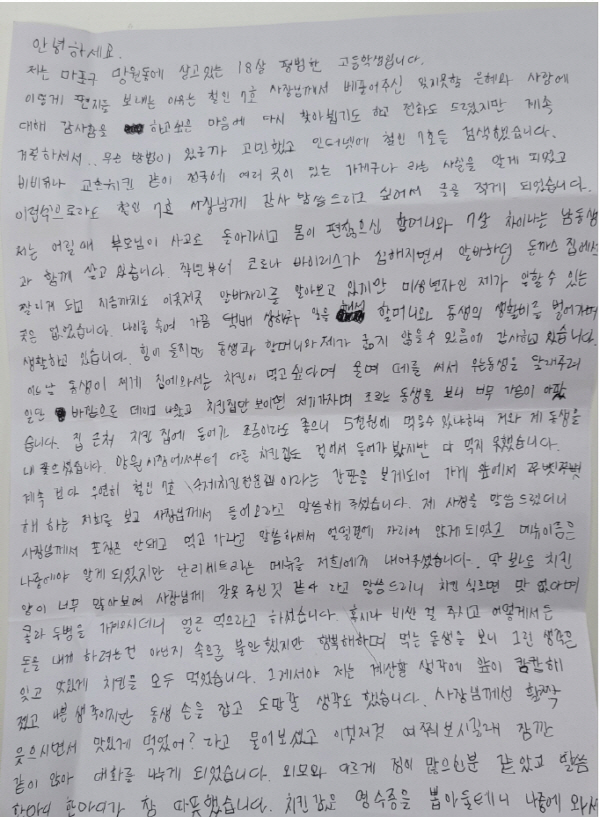 안녕하세요.
저는 마포구 망원동에 살고있는 18살 평범한 고등학생입니다.
이렇게 편지를 보내는 이유는 철인 7호 사장님께서 베풀어주신 잊지못할 은혜와 사랑에
대해 감사함을 하고싶은 마음에 다시 찾아뵙기도 하고 전화도 드렸지만 계속
거절하셔서.. 무슨 방법이 있을까 고민했고 인터넷에 철인 7호를 검색했습니다.
비비큐나 교촌치킨 같이 전국에 여러 곳이 있는 가게구나 라는 사실을 알게 되었고
이런식으로라도 철인 7호 사장님께 감사 말씀드리고 싶어서 글을 적게 되었습니다.
저는 어릴 때 부모님이 사고로 돌아가시고 몸이 편찮으신 할머니와 7살 차이나는 남동생
과 함께 살고 있습니다. 작년부터 코로나 바이러스가 심해지면서 알바하던 돈까스 집에서
짤리게 되고 지금까지도 이곳저곳 알바자리를 알아보고 있지만 미성년자인 제가 일할 수 있는
곳은 없었습니다. 나이를 속여 가끔 택배 상하차 일을 해서 할머니와 동생의 생활비를 벌어가며
생활하고 있습니다. 힘이 들지만 동생과 할머니와 제가 굶지 않을 수 있음에 감사하고 있습니다.
어느날 동생이 제게 집에와서는 치킨이 먹고싶다며 울며 떼를 써서 우는동생을 달래주려
일단 바깥으로 데리고 나왔고 치킨집만 보이면 저기가자며 조르는 동생을 보니 너무 가슴이 아팠
습니다. 집 근처 치킨 집에 들어가 조금이라도 좋으니 5천원에 먹을수 있냐하니 저와 제 동생을
내 쫓으셨습니다. 망원시장에서부터 다른 치킨집도 걸어서 들어가 봤지만 다 먹지 못했습니다.
계속 걷다 우연히 철인 7호 수제치킨전문점이라는 간판을 보게되어 가게 앞에서 쭈뼛쭈뼛
해 하는 저희를 보고 사장님께서 들어오라고 말씀해 주셨습니다. 제 사정을 말씀 드렸더니
사장님께서 포장은 안돼고 먹고 가라고 말씀하셔서 얼떨결에 자리에 앉게 되었고 메뉴이름은
나중에야 알게 되었지만 난리세트라는 메뉴를 저희에게 내어주셨습니다. 딱 보아도 치킨
양이 너무 많아보여 사장님께 잘못 주신것 같다 라고 말씀드리니 치킨 식으면 맛 없다며
콜라 두병을 가져오시더니 얼른 먹으라고 하셨습니다. 혹시나 비싼 걸 주시고 어떻게서든
돈을 내게 하려는건 아닌지 속으론 불안했지만 행복해하며 먹는 동생을 보니 그런 생각은
잊고 맛있게 치킨을 모두 먹었습니다. 그제서야 저는 계산할 생각에 앞이 캄캄해
졌고 나쁜 생각이지만 동생 손을 잡고 도망갈 생각도 했습니다. 사장님께선 활짝
웃으시면서 맛있게 먹었어? 라고 물어보셨고 이것저것 여쭤보시길래 잠깐
같이 앉아 대화를 나누게 되었습니다. 외모와 다르게 정이 많으신분 같았고 말씀
한마디 한마디가 참 따뜻했습니다. 치킨값은 영수증을 뽑아둘테니 나중에 와서